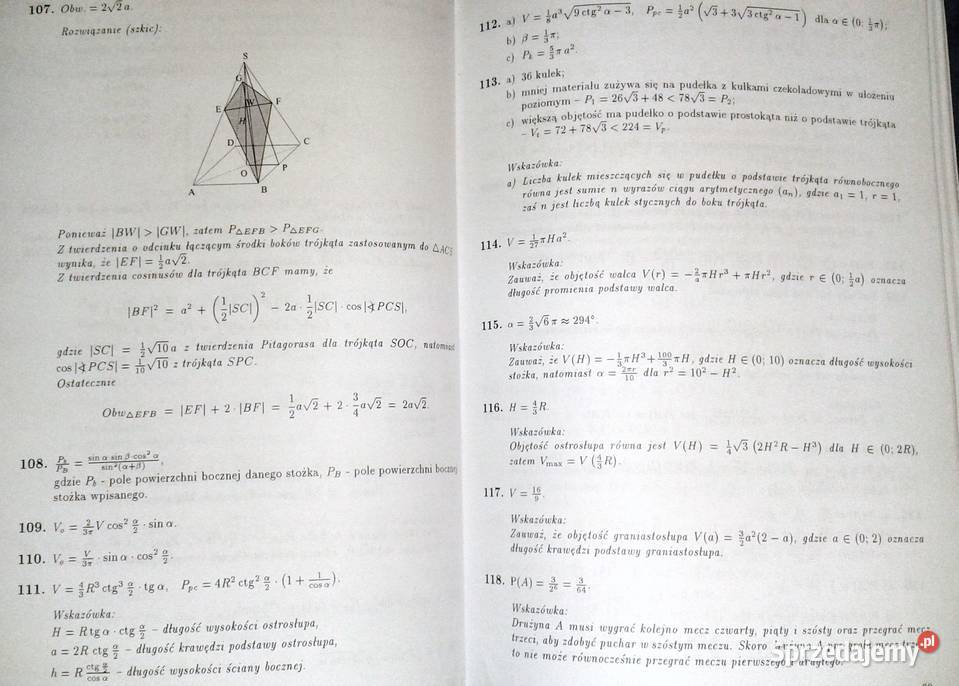 107. Obw. = 2√2 a.
Rozwiązanie (szkic):
S
G
E
W
F
H
D
C
O
P
A
B
Ponieważ |BW| > |GW|, zatem P△EFB > P△EFG.
Z twierdzenia o odcinku łączącym środki boków trójkąta zastosowanym do △ACS
wynika, że |EF| = 1/2 a√2.
Z twierdzenia cosinusów dla trójkąta BCF mamy, że
|BF|² = a² + (1/2 |SC|)² − 2a · 1/2 |SC| · cos|∢PCS|,
gdzie |SC| = 1/2 √10 a z twierdzenia Pitagorasa dla trójkąta SOC, natomiast
cos|∢PCS| = 1/10 √10 z trójkąta SPC.
Ostatecznie
Obw△EFB = |EF| + 2 · |BF| = 1/2 a√2 + 2 · 3/4 a√2 = 2a√2.
108. Pb/PB = sin α·sin β·cos² α / sin²(α+β),
gdzie Pb - pole powierzchni bocznej danego stożka, PB - pole powierzchni bocznej
stożka wpisanego.
109. Vo = 2/3π V cos² α/2 · sin α.
110. Vo = V/3π · sin α · cos² α/2.
111. V = 4/3 R³ ctg³ α/2 · tg α, Ppc = 4R² ctg² α/2 · (1 + 1/cos α).
Wskazówka:
H = R tg α · ctg α/2 – długość wysokości ostrosłupa,
a = 2R ctg α/2 – długość krawędzi podstawy ostrosłupa,
h = R ctg α/2 / cos α – długość wysokości ściany bocznej.
112. a) V = 1/8 a³ √(9 ctg² α − 3), Ppc = 1/2 a² (√3 + 3√(3 ctg² α − 1)) dla α ∈ (0; 1/3 π);
b) β = 1/3 π;
c) Pk = 5/3 π a².
113. a) 36 kulek;
b) mniej materiału zużywa się na pudełka z kulkami czekoladowymi w ułożeniu
poziomym – P₁ = 26√3 + 48 < 78√3 = P₂;
c) większą objętość ma pudełko o podstawie prostokąta niż o podstawie trójkąta
– Vt = 72 + 78√3 < 224 = Vp.
Wskazówka:
a) Liczba kulek mieszczących się w pudełku o podstawie trójkąta równobocznego
równa jest sumie n wyrazów ciągu arytmetycznego (an), gdzie a₁ = 1, r = 1,
zaś n jest liczbą kulek stycznych do boku trójkąta.
114. V = 1/27 πHa².
Wskazówka:
Zauważ, że objętość walca V(r) = −2/a πHr³ + πHr², gdzie r ∈ (0; 1/2 a) oznacza
długość promienia podstawy walca.
115. α = 2/3 √6 π ≈ 294°.
Wskazówka:
Zauważ, że V(H) = −1/3 πH³ + 100/3 πH, gdzie H ∈ (0; 10) oznacza długość wysokości
stożka, natomiast α = 2πr/10 dla r² = 10² − H².
116. H = 4/3 R.
Wskazówka:
Objętość ostrosłupa równa jest V(H) = 1/4 √3 (2H²R − H³) dla H ∈ (0; 2R),
zatem Vmax = V (4/3 R).
117. V = 16/9.
Wskazówka:
Zauważ, że objętość graniastosłupa V(a) = 3/2 a²(2 − a), gdzie a ∈ (0; 2) oznacza
długość krawędzi podstawy graniastosłupa.
118. P(A) = 3/2⁶ = 3/64.
Wskazówka:
Drużyna A musi wygrać kolejno mecz czwarty, piąty i szósty oraz przegrać mecz
trzeci, aby zdobyć puchar w szóstym meczu. Skoro
to nie może równocześnie przegrać meczu pierwszego i drugiego.
Sprzedajemy.pl